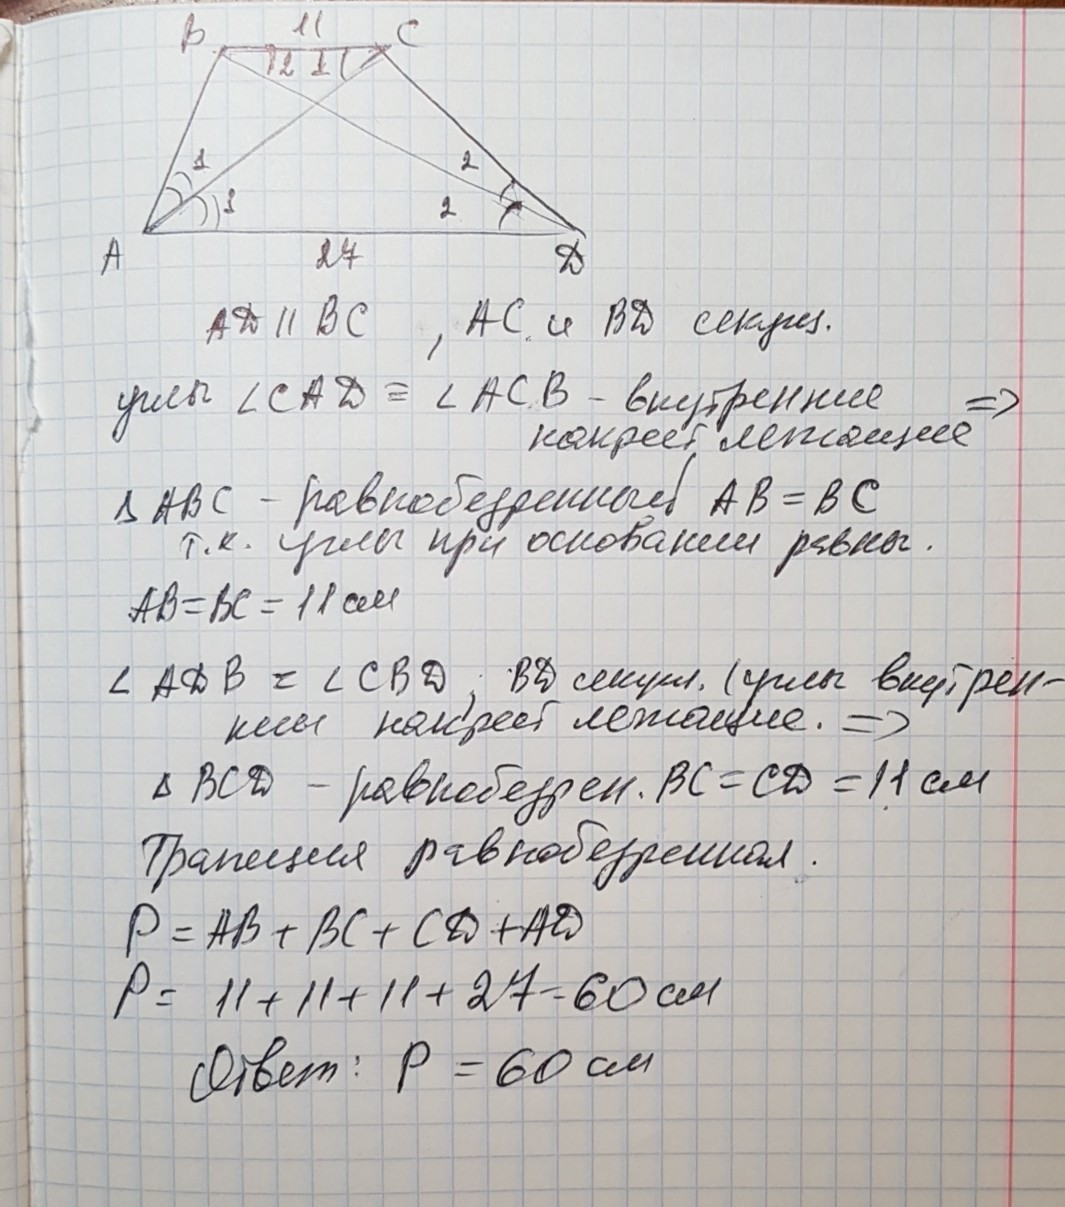 B 11 C
2 1
1 2
1 2
A 27 D
AD || BC , AC и BD секущ.
углы ∠CAD = ∠ACB - внутренние =>
накрест лежащие
Δ ABC - равнобедренный AB = BC
т.к. углы при основании равны.
AB = BC = 11 см
∠ ADB = ∠ CBD, BD секущ. (углы внутрен-
ние накрест лежащие. =>
Δ BCD - равнобедрен. BC = CD = 11 см
Трапеция равнобедренная.
P = AB + BC + CD + AD
P = 11 + 11 + 11 + 27 = 60 см
Ответ: P = 60 см